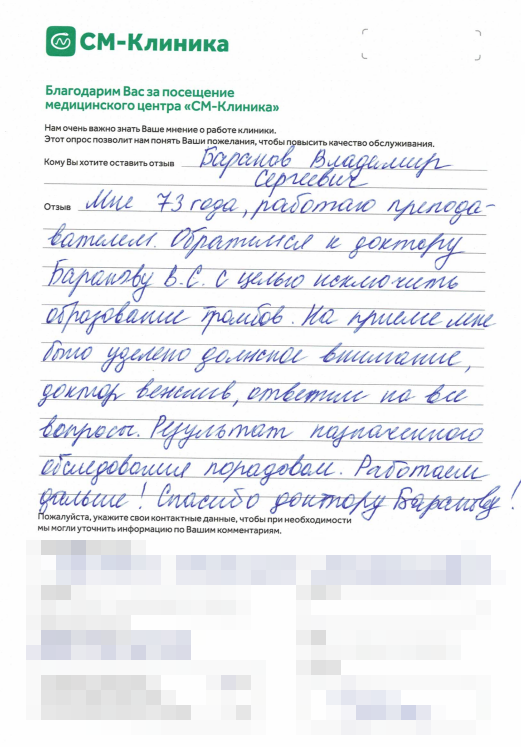 СМ-Клиника
Благодарим Вас за посещение
медицинского центра «СМ-Клиника»
Нам очень важно знать Ваше мнение о работе клиники.
Этот опрос позволит нам понять Ваши пожелания, чтобы повысить качество обслуживания.
Кому Вы хотите оставить отзыв Баранов Владимир
Сергеевич
Отзыв Мне 73 года, работаю препода-
вателем. Обратился к доктору
Баранову В.С. с целью исключить
образование тромбов. На приеме мне
было уделено должное внимание,
доктор вежлив, ответил на все
вопросы. Результат назначенного
обследования порадовал. Работаем
дальше! Спасибо доктору Баранову!
Пожалуйста, укажите свои контактные данные, чтобы при необходимости
мы могли уточнить информацию по Вашим комментариям.